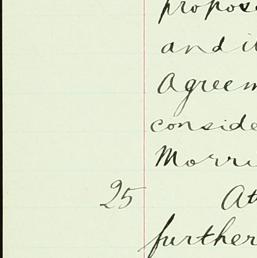 propos
and i
Agreem
conside
Morri
25 At
further